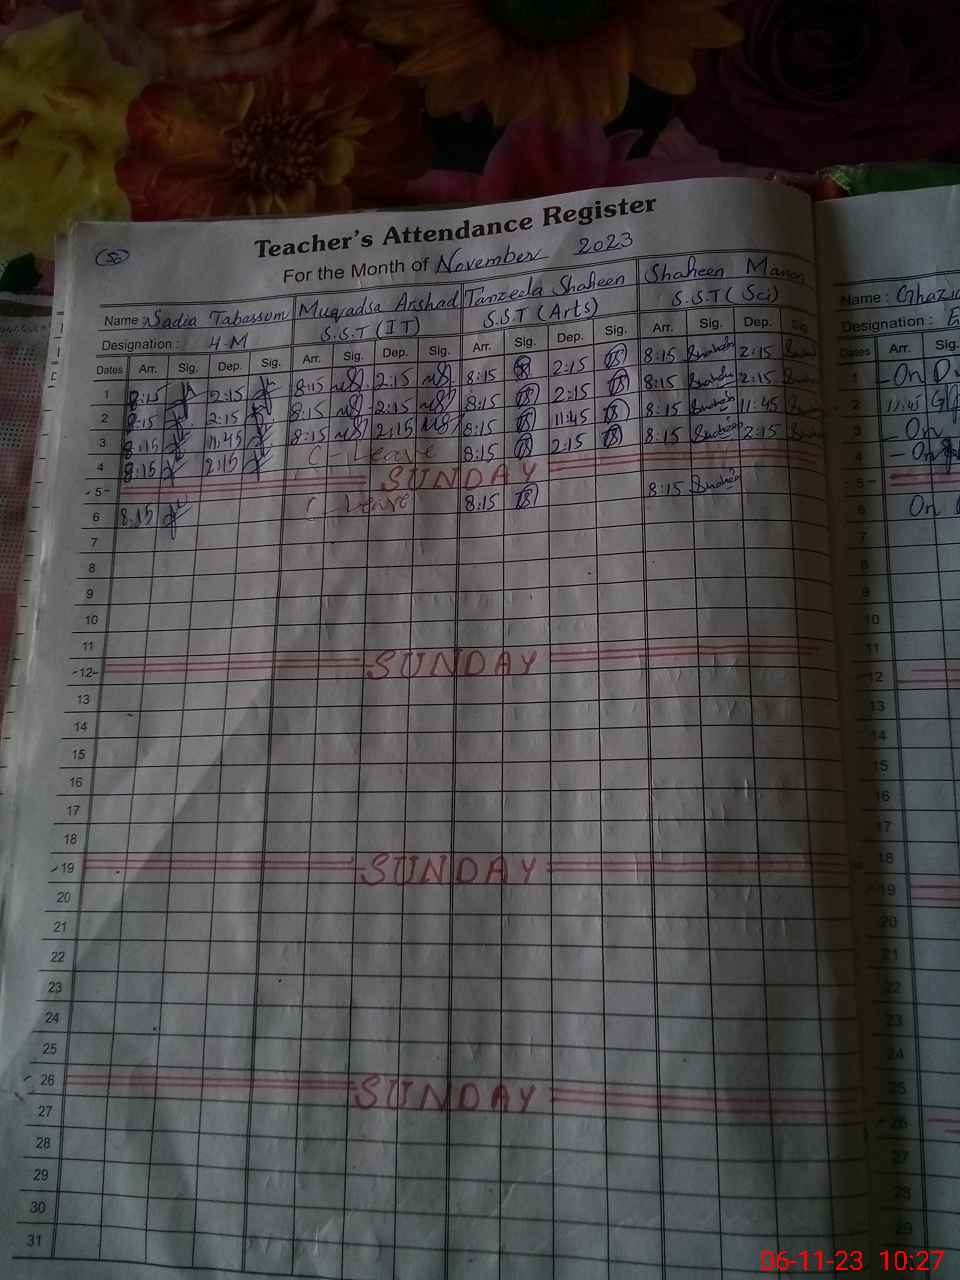 50
Teacher's Attendance Register
For the Month of November 2023
Name : Sadia Tabassum Muqradsa Arshad Tanzeela Shaheen Shaheen Manan Name : Ghazia
Designation : H.M S.S.T (IT) S.S.T (Arts) S.S.T (Sci) Designation : E
Dates Arr. Sig. Dep. Sig. Arr. Sig. Dep. Sig. Arr. Sig. Dep. Sig. Arr. Sig. Dep. Sig Dates Arr. Sig.
1 8:15 2:15 8:15 2:15 8:15 2:15 8:15 2:15 1 On D
2 8:15 2:15 8:15 2:15 8:15 2:15 8:15 2:15 2 11:45
3 8:15 11:45 8:15 2:15 8:15 11:45 8:15 11:45 3 On
4 8:15 2:15 C - Leave 8:15 2:15 8:15 2:15 4 On
5 SUNDAY 5
6 8:15 C - Leave 8:15 8:15 6 On
7 7
8 8
9 9
10 10
11 11
12 SUNDAY 12
13 13
14 14
15 15
16 16
17 17
18 18
19 SUNDAY 19
20 20
21 21
22 22
23 23
24 24
25 25
26 SUNDAY 26
27 27
28 28
29 29
30
31
06-11-23 10:27